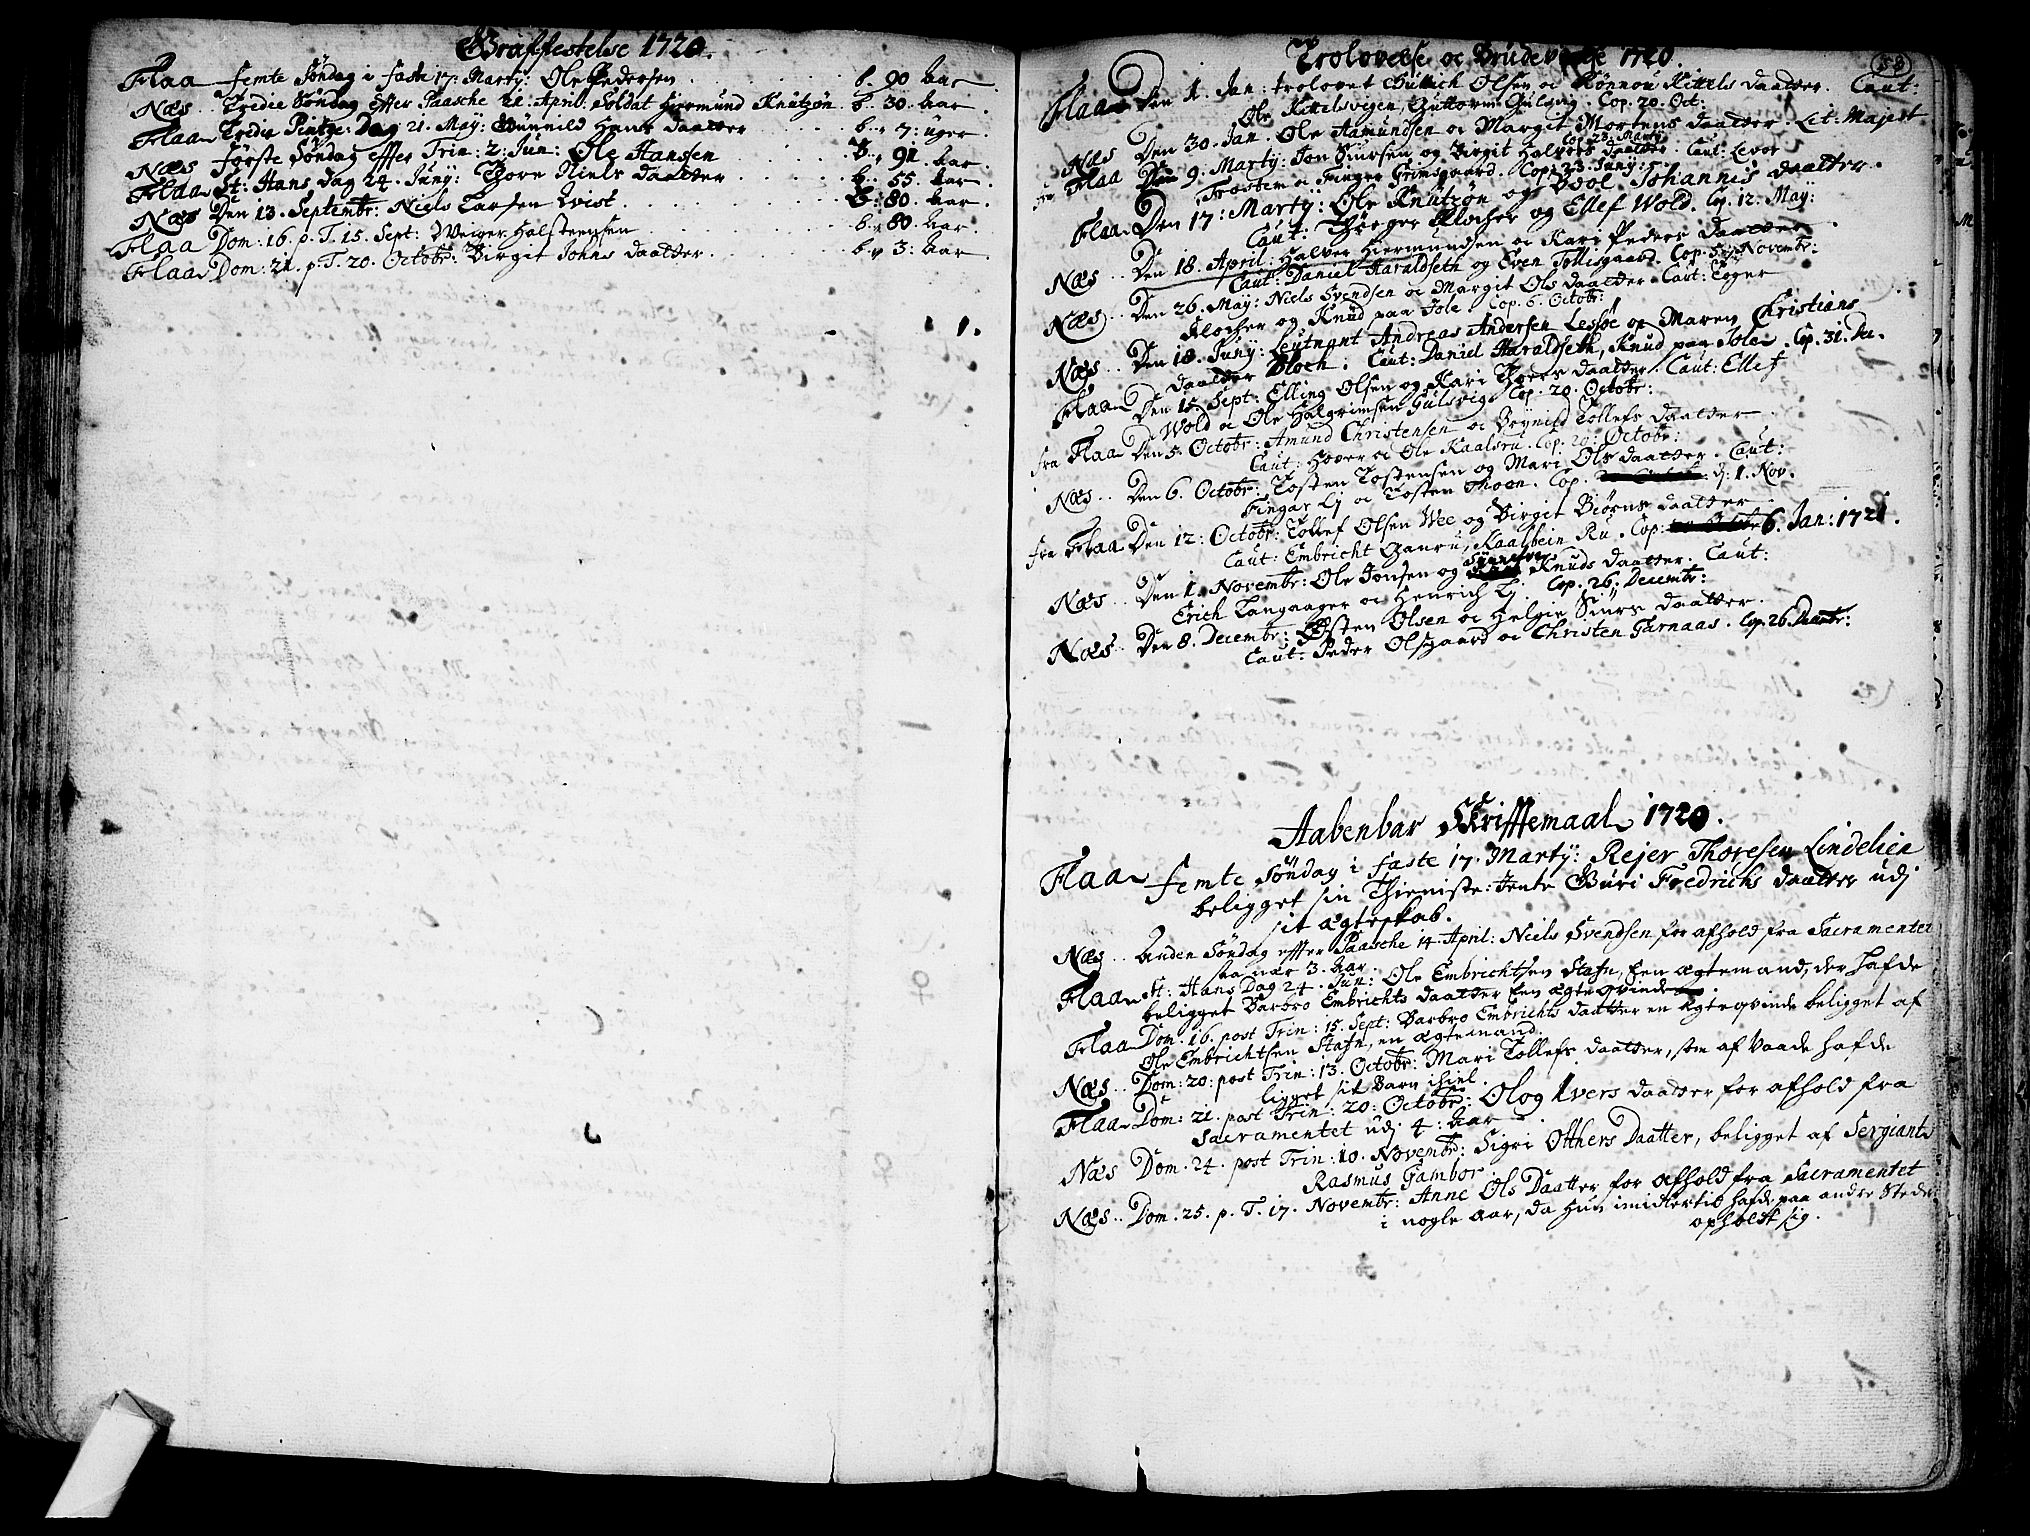 Graffestelse 1720.
Flaa femte Søndag i faste 17: Martÿ: Ole Pedersen b. 90 Aar
Næs Tredie Søndag effter Paasche 21. April. Soldat Hiermund Knutzøn b.. 30. Aar
Flaa Tredie Pintze: Dag 21. Maÿ: Gunnild Hans daatter b.. 7: uger.
Næs første Søndag effter Trin: 2: Jun: Ole Hanssen b.. 91. Aar.
Flaa St: Hans dag 24. Junÿ: Thore Niels daatter b.. 55. Aar.
Næs Den 13. Septembr: Niels Larsen Qvist b.. 80. Aar.
Flaa Dom: 16. p. T. 15. Sept: Weiger Halsteensen b.. 80 Aar.
Flaa Dom: 21. p. T. 20. Octobr: Birgit Johns daatter b.. 3: Aar.
Trolovelse oc Brudevielse 1720.
58
Flaa Den 1. Jan: trolovet Gulbich Olsen oc Rønnou Kittels daatter. Caut:
Ole Kittelsvigen, Guttorm Gulsvig. Cop. 20. Oct:
Næs Den 30. Jan. Ole Aamundsen oc Margit Mortens daatter. Lit: Majest
Cop. 23. Martÿ
fra Flaa Den 9. Martÿ: Jon Siursen og Birgit Halvors daatter. Caut: Levor
Trostem oc Finger Grimsgaard. Cop. 23. Junÿ:
Flaa Den 17: Martÿ: Ole Knutzøn og Bool Johannis daatter.
Caut: Thorger Klocher og Ellef Wold. Cop. 12. Maÿ:
Næs Den 18. April: Halver Hiermundsen oc Kari Peders daatter.
Caut: Daniel Haraldseth og Even Tollisgaard. Cop. 5. Novembr:
Næs Den 26. Maÿ: Niels Svendsen oc Margit Ols daatter. Caut: Tøger
Klocher og Knud paa Jole. Cop. 6. Octobr:
Næs Den 18. Junÿ: Leutnant Andreas Andersen Lessøe og Maren Christians
daatter Bloch. Caut: Daniel Haraldseth, Knud paa Jole. Cop. 31. De.
Flaa Den 15 Sept: Elling Olsen og Kari Thores daatter. Caut: Ellef
Wold oc Ole Halgrimsen Gulsvig. Cop. 20. Octobr:
fra Flaa Den 5. Octobr: Amund Christensen oc Bøynild Tollefs daatter.
Caut: Hover oc Ole Kaalsrud. Cop. 20: Octobr:
Næs Den 6. Octobr: Tosten Tostensen og Mari Ols daatter. Caut:
Fingar Lj oc Tosten Thoen. Cop. d. 1. Nov.
fra Flaa Den 12: Octobr: Tollef Olsen Wee og Birgit Biørns daatter
Caut: Embricht Ganrud, Kaalbein Ru. Cop: 6. Jan: 1721.
Næs Den 1. Novembr: Ole Jonsen og Sünnøve Knuds daatter. Caut:
Erich Langaager oc Henrich Lj. Cop. 26. Decembr:
Næs Den 8. Decembr: Østen Olsen oc Helgie Siurs daatter.
Caut: Peder Olsgaard oc Christen Garnaas. Cop. 26. Decembr:
Aabenbar Skrifftemaal 1720.
Flaa femte Søndag i faste 17. Martÿ: Rejer Thoresen Lindelien
beligget sin Thieniste: Jente Guri Fredrichs daatter udj
sit ægteskab.
Næs Anden Søndag effter Paasche 14. April: Niels Svendsen for afhold fra Sacramentet
paa nær 3. Aar.
Flaa St: Hans Dag 24. Jun: Ole Embrichtsen Stafn, Een ægtemand, der hafde
beligget Barbro Embrichts daatter Een ægteqvinde.
Flaa Dom: 16. post Trin: 15. Sept: Barbro Embrichts daatter en ægteqvinde beligget af
Ole Embrichtsen Stafn, en ægtemand.
Næs Dom: 20: post Trin: 13. Octobr: Mari Tollefs daatter, som af Vaade hafde
ligget sit Barn ihiel.
Flaa Dom: 21. post Trin: 20: Octobr: Olog Ivers daatter for afhold fra
Sacramentet udj 4: Aar.
Næs Dom. 24. post Trin: 10. Novembr: Sigri Otthers Daatter, beligget af Sergiant
Rasmus Gambor
Næs Dom. 25. p. T. 17. Novembr: Anne Ols Daatter for afhold fra Sacramentet
i nogle aar, da hun imidlertid hafde paa andre Steder
opholdt sig.